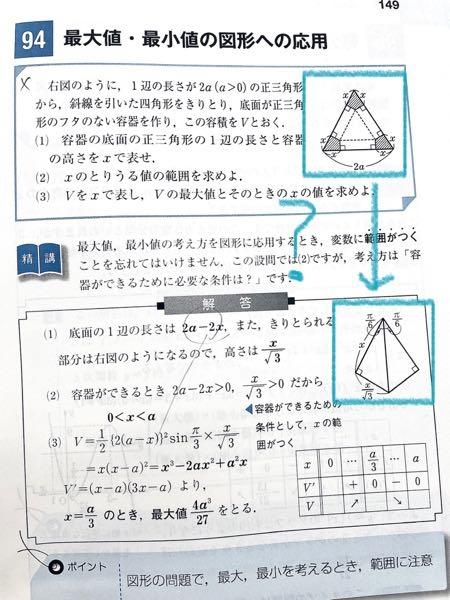 149
94 最大値・最小値の図形への応用
右図のように，1辺の長さが2a(a>0)の正三角形
から，斜線を引いた四角形をきりとり，底面が正三角
形のフタのない容器を作り，この容積をVとおく．
(1) 容器の底面の正三角形の1辺の長さと容器
の高さをxで表せ．
(2) xのとりうる値の範囲を求めよ．
(3) Vをxで表し，Vの最大値とそのときのxの値を求めよ．
x x
x x
x x
2a
?
精講
最大値，最小値の考え方を図形に応用するとき，変数に範囲がつく
ことを忘れてはいけません．この設問では(2)ですが，考え方は「容
器ができるために必要な条件は？」です．
解答
(1) 底面の1辺の長さは 2a-2x，また，きりとられる
部分は右図のようになるので，高さは x/√3
π/6 π/6
x
x/√3
(2) 容器ができるとき 2a-2x>0, x/√3>0 だから
0<x<a
◀容器ができるための
条件として，xの範
囲がつく
(3) V=1/2{2(a-x)}²sin π/3×x/√3
=x(x-a)²=x³-2ax²+a²x
V'=(x-a)(3x-a) より，
x=a/3 のとき，最大値 4a³/27 をとる．
x 0 … a/3 … a
V' + 0 - 0
V ↗ ↘
ポイント
図形の問題で，最大，最小を考えるとき，範囲に注意